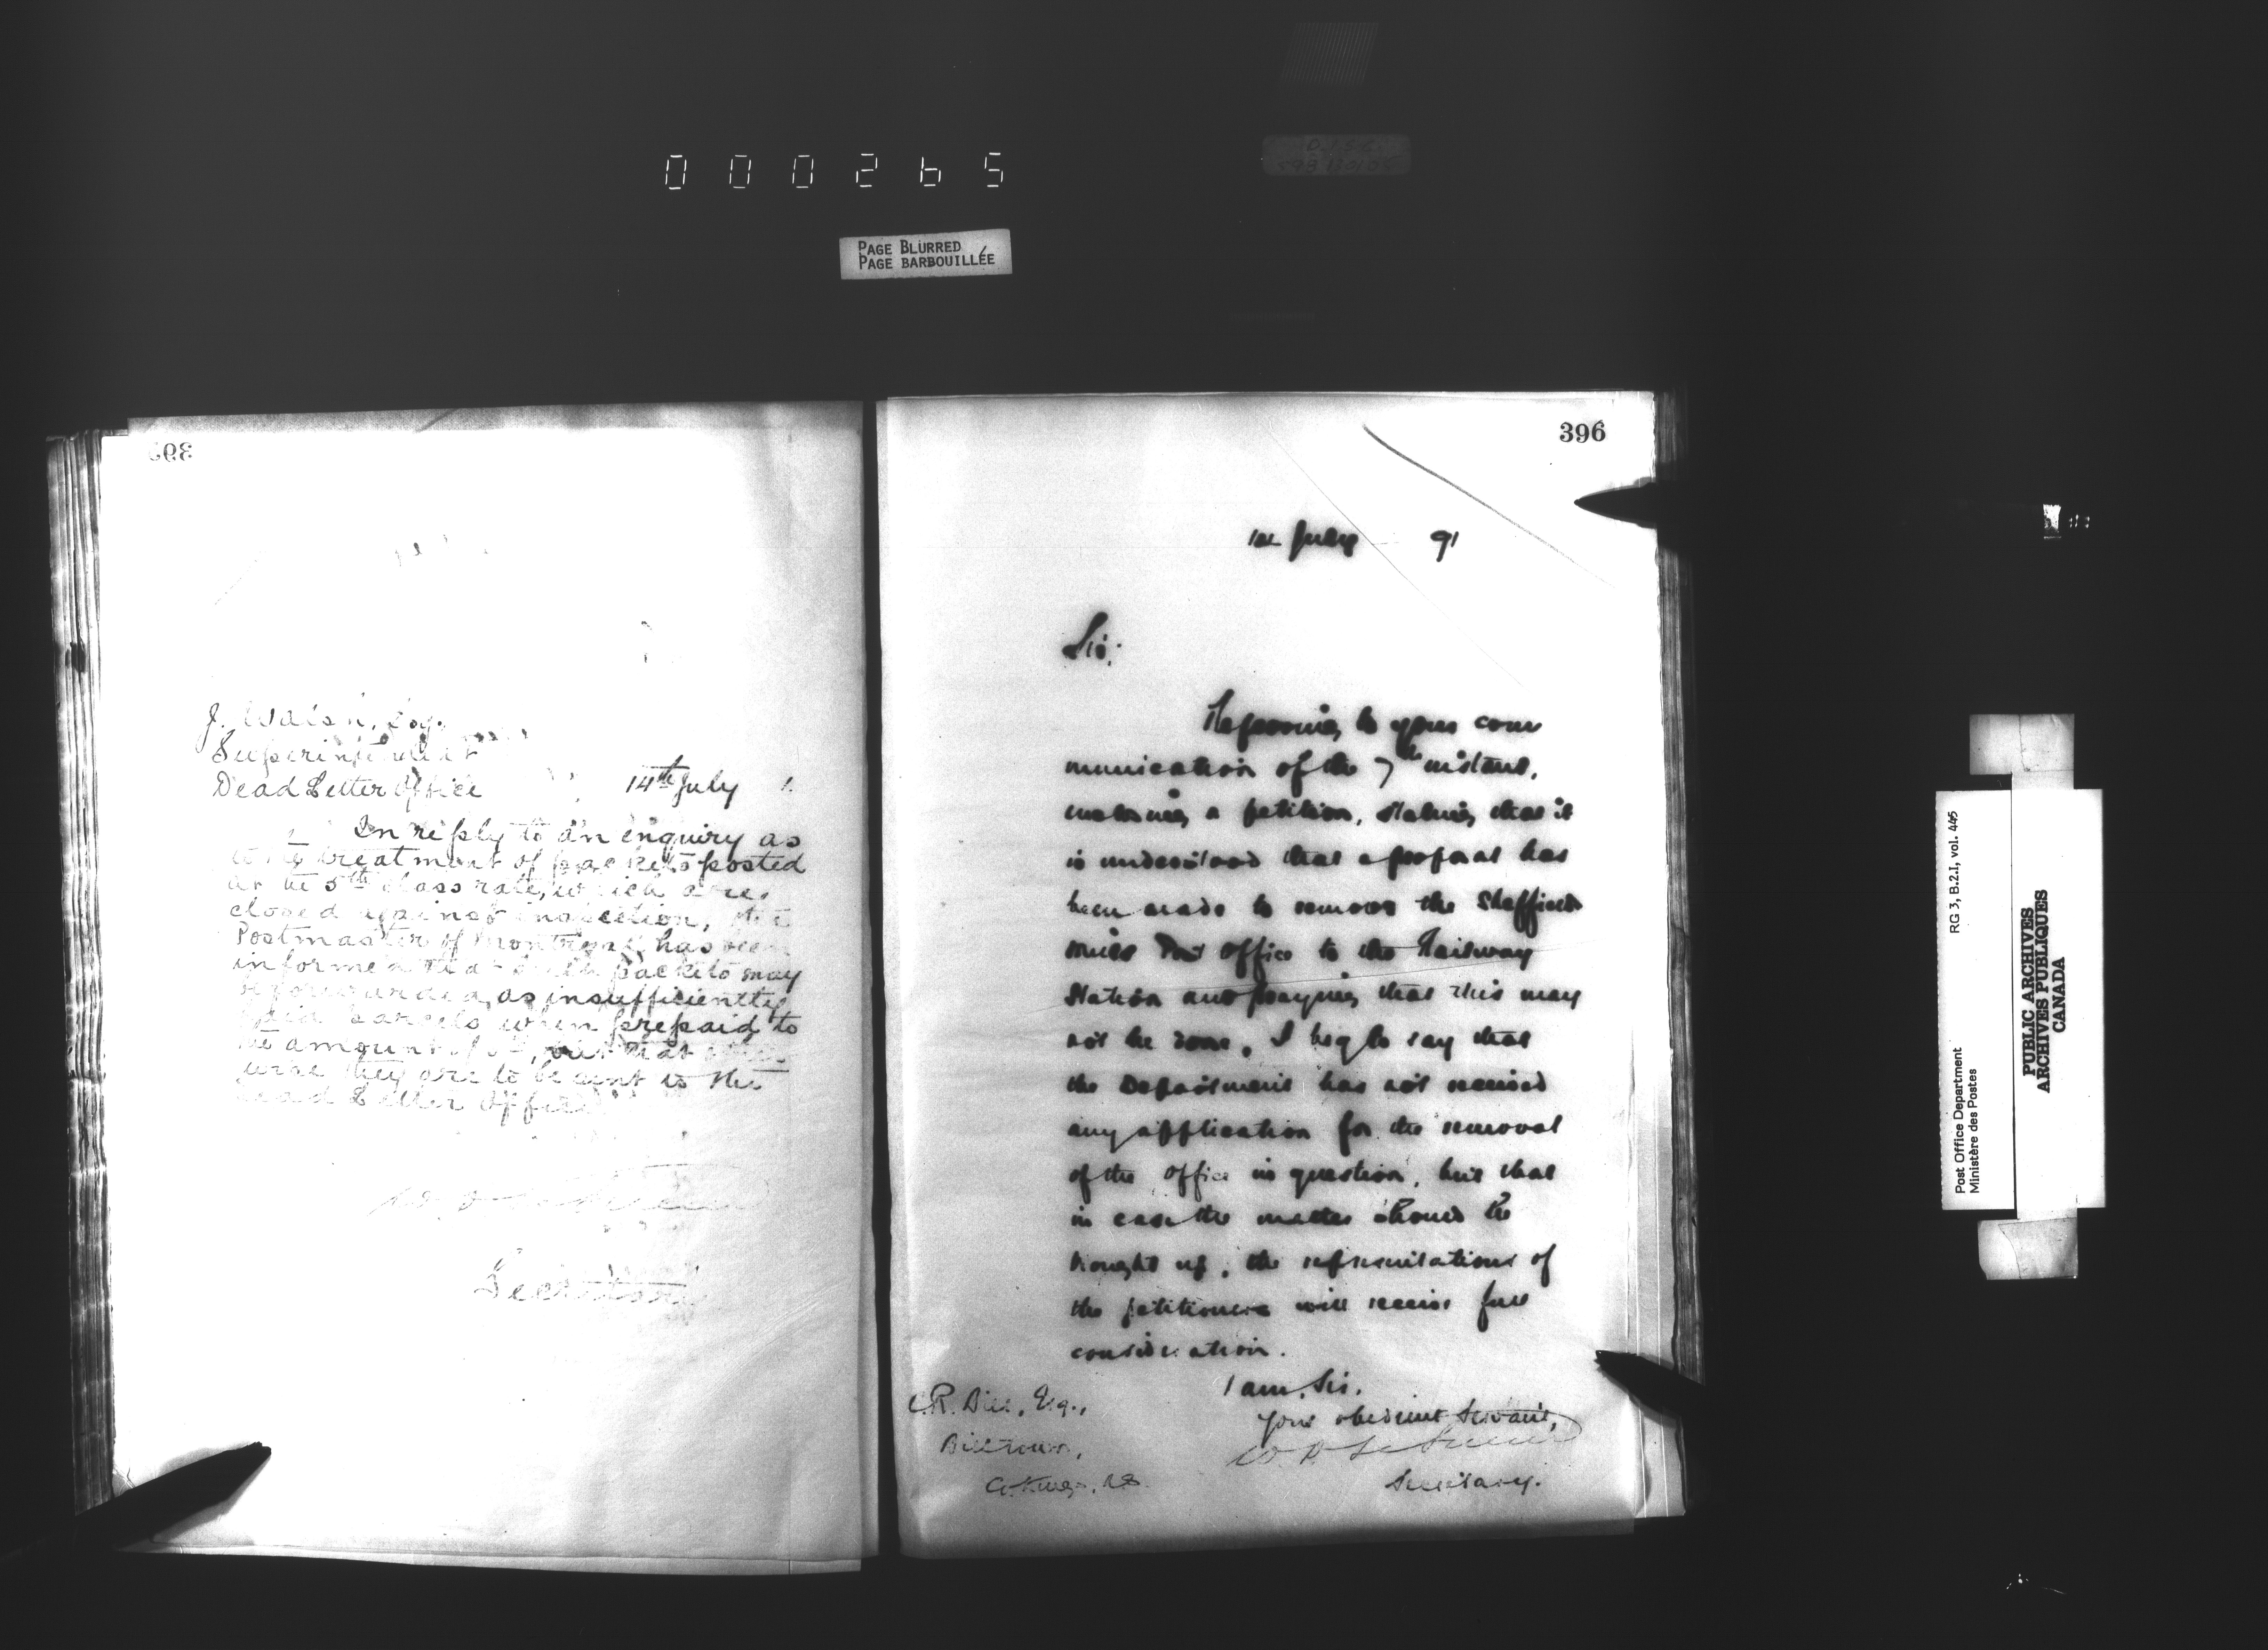 000265
PAGE BLURRED
PAGE BARBOUILLÉE
J. Walsh, Esq.
Superintendent
Dead Letter Office
14th July
In reply to an enquiry as
to the treatment of packets posted
at the 5th class rate, which are
closed against inspection, the
Postmaster of Montreal has been
informed that such packets may
be forwarded as insufficiently
paid parcels when prepaid to
the amount of, but that
they are to be sent to the
Dead Letter Office
Secretary
396
July 91
Sir,
Referring to your com
munication of the 7th instant,
enclosing a petition, stating that it
is understood that a proposal has
been made to remove the Sheffield
Mills Post Office to the Railway
Station and praying that this may
not be done, I beg to say that
the Department has not received
any application for the removal
of the office in question, but that
in case the matter should be
brought up, the representations of
the petitioners will receive full
consideration.
I am, Sir,
Your obedient Servant,
Secretary.
C.R. Bill, Esq.,
Billtown,
Co. Kings, N.S.
RG 3, B.2.I, vol. 445
Post Office Department
Ministère des Postes
PUBLIC ARCHIVES
ARCHIVES PUBLIQUES
CANADA